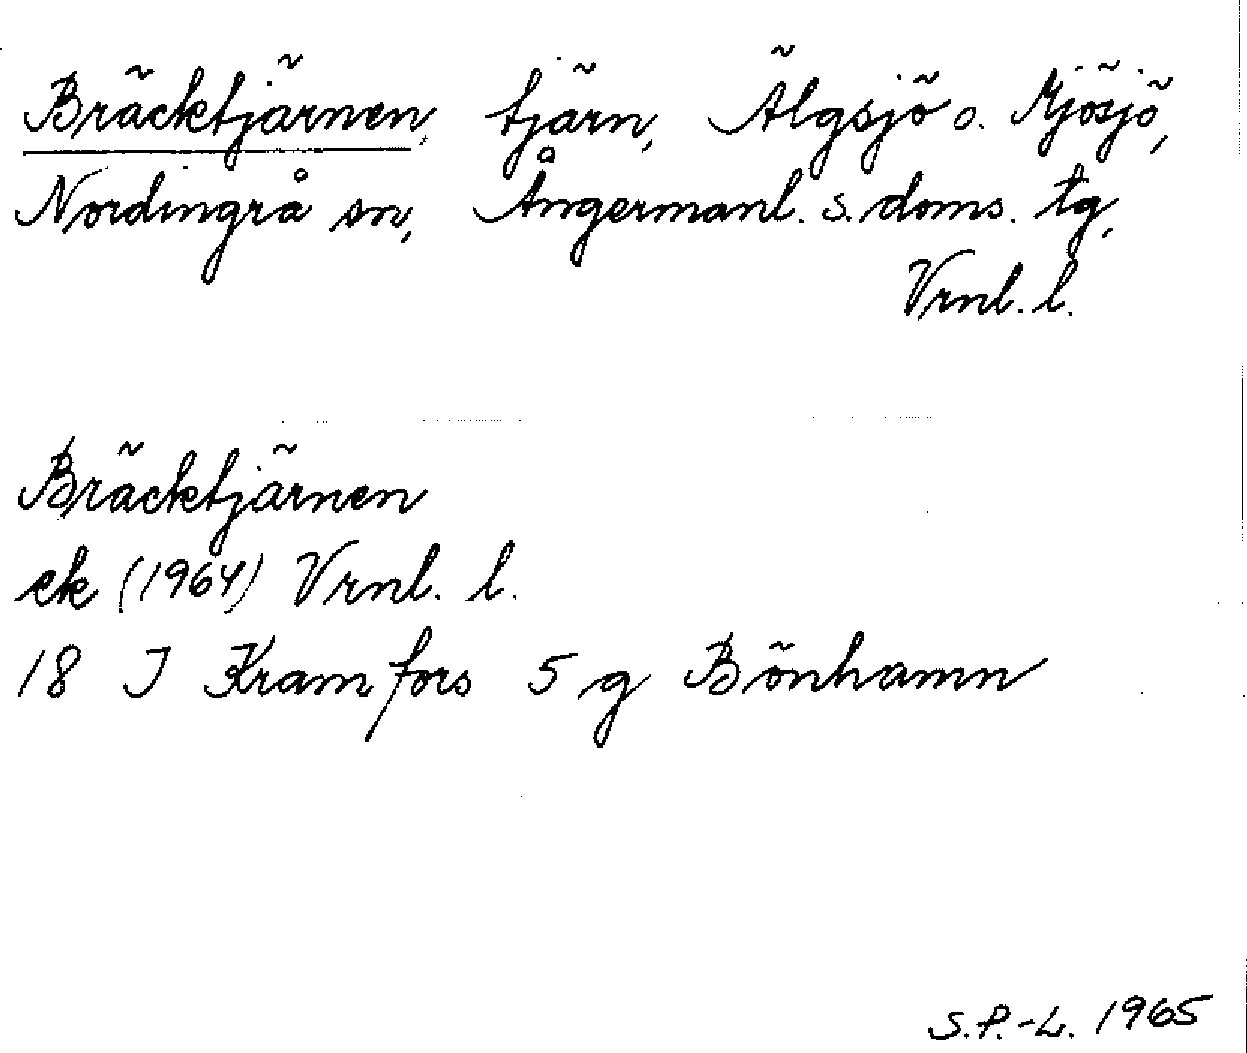 Bräcktjärnen, tjärn, Älgsjö o. Mjösjö,
Nordingrå sn, Ångermanl. s. doms. tg,
Vrnl. l.
Bräcktjärnen
ek (1964) Vrnl. l.
18 J Kramfors 5 g Bönhamn
S.P.-L. 1965